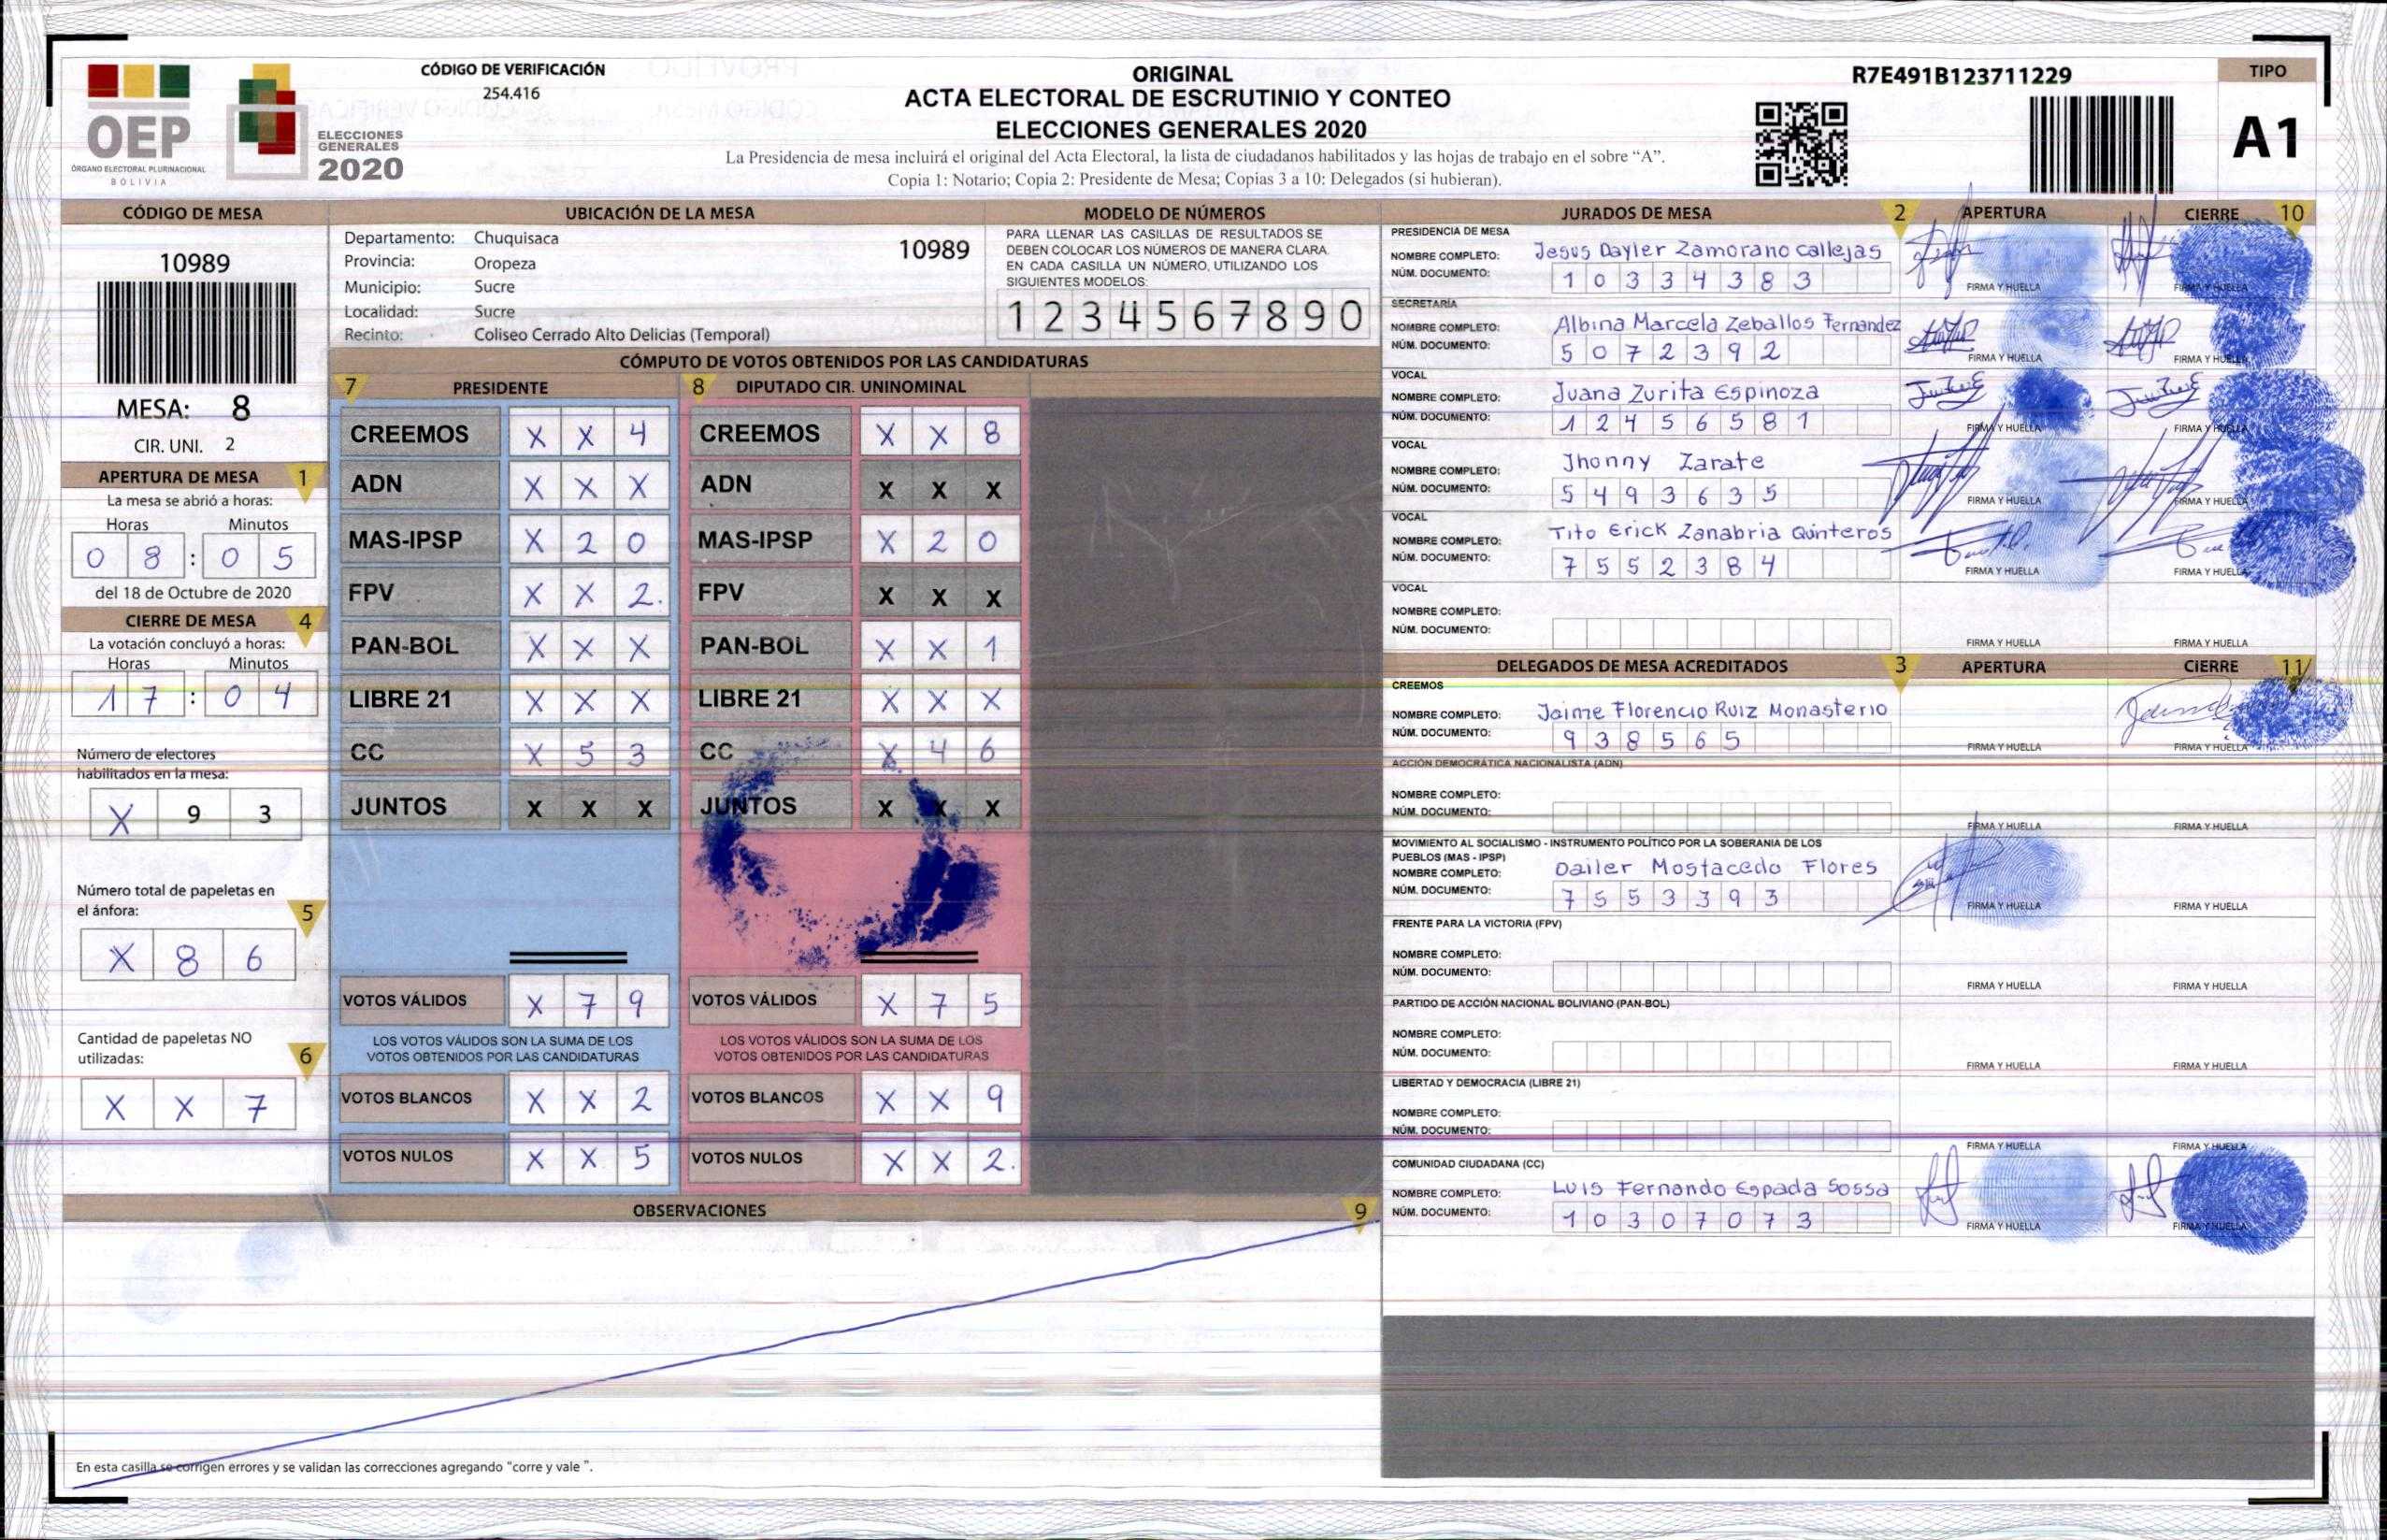 OEP
ÓRGANO ELECTORAL PLURINACIONAL
BOLIVIA
ELECCIONES
GENERALES
2020
CÓDIGO DE VERIFICACIÓN
254.416
ORIGINAL
ACTA ELECTORAL DE ESCRUTINIO Y CONTEO
ELECCIONES GENERALES 2020
La Presidencia de mesa incluirá el original del Acta Electoral, la lista de ciudadanos habilitados y las hojas de trabajo en el sobre “A”.
Copia 1: Notario; Copia 2: Presidente de Mesa; Copias 3 a 10: Delegados (si hubieran).
R7E491B123711229
TIPO
A1
CÓDIGO DE MESA
10989
MESA: 8
CIR. UNI. 2
APERTURA DE MESA 1
La mesa se abrió a horas:
Horas Minutos
0 8 : 0 5
del 18 de Octubre de 2020
CIERRE DE MESA 4
La votación concluyó a horas:
Horas Minutos
1 7 : 0 4
Número de electores
habilitados en la mesa:
X 9 3
Número total de papeletas en
el ánfora: 5
X 8 6
Cantidad de papeletas NO
utilizadas: 6
X X 7
UBICACIÓN DE LA MESA
Departamento: Chuquisaca 10989
Provincia: Oropeza
Municipio: Sucre
Localidad: Sucre
Recinto: Coliseo Cerrado Alto Delicias (Temporal)
MODELO DE NÚMEROS
PARA LLENAR LAS CASILLAS DE RESULTADOS SE
DEBEN COLOCAR LOS NÚMEROS DE MANERA CLARA.
EN CADA CASILLA UN NÚMERO, UTILIZANDO LOS
SIGUIENTES MODELOS:
1 2 3 4 5 6 7 8 9 0
CÓMPUTO DE VOTOS OBTENIDOS POR LAS CANDIDATURAS
7 PRESIDENTE 8 DIPUTADO CIR. UNINOMINAL
CREEMOS X X 4 CREEMOS X X 8
ADN X X X ADN X X X
MAS-IPSP X 2 0 MAS-IPSP X 2 0
FPV X X 2. FPV X X X
PAN-BOL X X X PAN-BOL X X 1
LIBRE 21 X X X LIBRE 21 X X X
CC X 5 3 CC X 4 6
JUNTOS X X X JUNTOS X X X
VOTOS VÁLIDOS X 7 9 VOTOS VÁLIDOS X 7 5
LOS VOTOS VÁLIDOS SON LA SUMA DE LOS LOS VOTOS VÁLIDOS SON LA SUMA DE LOS
VOTOS OBTENIDOS POR LAS CANDIDATURAS VOTOS OBTENIDOS POR LAS CANDIDATURAS
VOTOS BLANCOS X X 2 VOTOS BLANCOS X X 9
VOTOS NULOS X X 5 VOTOS NULOS X X 2.
OBSERVACIONES 9
En esta casilla se corrigen errores y se validan las correcciones agregando “corre y vale ”.
JURADOS DE MESA 2 APERTURA CIERRE 10
PRESIDENCIA DE MESA
NOMBRE COMPLETO: Jesus Dayler Zamorano Callejas
NÚM. DOCUMENTO: 1 0 3 3 4 3 8 3
FIRMA Y HUELLA FIRMA Y HUELLA
SECRETARÍA
NOMBRE COMPLETO: Albina Marcela Zeballos Fernandez
NÚM. DOCUMENTO: 5 0 7 2 3 9 2
FIRMA Y HUELLA FIRMA Y HUELLA
VOCAL
NOMBRE COMPLETO: Juana Zurita Espinoza
NÚM. DOCUMENTO: 1 2 4 5 6 5 8 1
FIRMA Y HUELLA FIRMA Y HUELLA
VOCAL
NOMBRE COMPLETO: Jhonny Zarate
NÚM. DOCUMENTO: 5 4 9 3 6 3 5
FIRMA Y HUELLA FIRMA Y HUELLA
VOCAL
NOMBRE COMPLETO: Tito Erick Zanabria Quinteros
NÚM. DOCUMENTO: 7 5 5 2 3 8 4
FIRMA Y HUELLA FIRMA Y HUELLA
VOCAL
NOMBRE COMPLETO:
NÚM. DOCUMENTO:
FIRMA Y HUELLA FIRMA Y HUELLA
DELEGADOS DE MESA ACREDITADOS 3 APERTURA CIERRE 11
CREEMOS
NOMBRE COMPLETO: Jaime Florencio Ruiz Monasterio
NÚM. DOCUMENTO: 9 3 8 5 6 5
FIRMA Y HUELLA FIRMA Y HUELLA
ACCIÓN DEMOCRÁTICA NACIONALISTA (ADN)
NOMBRE COMPLETO:
NÚM. DOCUMENTO:
FIRMA Y HUELLA FIRMA Y HUELLA
MOVIMIENTO AL SOCIALISMO - INSTRUMENTO POLÍTICO POR LA SOBERANIA DE LOS
PUEBLOS (MAS - IPSP)
NOMBRE COMPLETO: Dailer Mostacedo Flores
NÚM. DOCUMENTO: 7 5 5 3 3 9 3
FIRMA Y HUELLA FIRMA Y HUELLA
FRENTE PARA LA VICTORIA (FPV)
NOMBRE COMPLETO:
NÚM. DOCUMENTO:
FIRMA Y HUELLA FIRMA Y HUELLA
PARTIDO DE ACCIÓN NACIONAL BOLIVIANO (PAN-BOL)
NOMBRE COMPLETO:
NÚM. DOCUMENTO:
FIRMA Y HUELLA FIRMA Y HUELLA
LIBERTAD Y DEMOCRACIA (LIBRE 21)
NOMBRE COMPLETO:
NÚM. DOCUMENTO:
FIRMA Y HUELLA FIRMA Y HUELLA
COMUNIDAD CIUDADANA (CC)
NOMBRE COMPLETO: Luis Fernando Espada Sossa
NÚM. DOCUMENTO: 1 0 3 0 7 0 7 3
FIRMA Y HUELLA FIRMA Y HUELLA